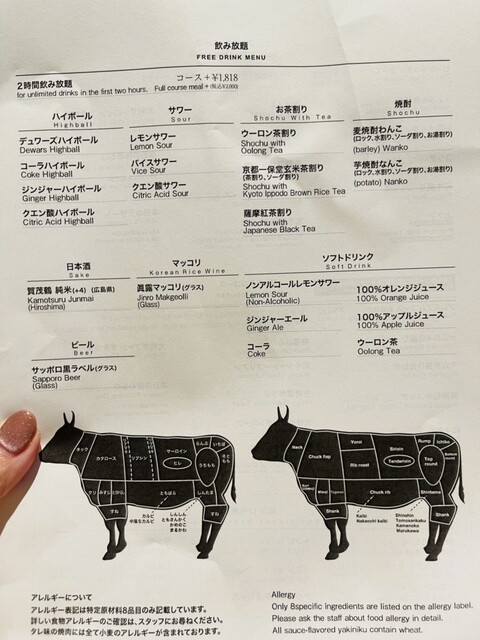 飲み放題
FREE DRINK MENU
2時間飲み放題 コース+¥1,818
for unlimited drinks in the first two hours. Full course meal + (税込¥2,000)
ハイボール
Highball
デュワーズハイボール
Dewars Highball
コーラハイボール
Coke Highball
ジンジャーハイボール
Ginger Highball
クエン酸ハイボール
Citric Acid Highball
サワー
Sour
レモンサワー
Lemon Sour
バイスサワー
Vice Sour
クエン酸サワー
Citric Acid Sour
お茶割り
Shochu With Tea
ウーロン茶割り
Shochu with
Oolong Tea
京都一保堂玄米茶割り
(茶割り、ソーダ割り)
Shochu with
Kyoto Ippodo Brown Rice Tea
薩摩紅茶割り
Shochu with
Japanese Black Tea
焼酎
Shochu
麦焼酎わんこ
(ロック、水割り、ソーダ割り、お湯割り)
(barley) Wanko
芋焼酎なんこ
(ロック、水割り、ソーダ割り、お湯割り)
(potato) Nanko
日本酒
Sake
賀茂鶴 純米(+4) (広島県)
Kamotsuru Junmai
(Hiroshima)
マッコリ
Korean Rice Wine
眞露マッコリ(グラス)
Jinro Makgeolli
(Glass)
ソフトドリンク
Soft Drink
ノンアルコールレモンサワー
Lemon Sour
(Non-Alcoholic)
ジンジャーエール
Ginger Ale
コーラ
Coke
100%オレンジジュース
100% Orange Juice
100%アップルジュース
100% Apple Juice
ウーロン茶
Oolong Tea
ビール
Beer
サッポロ黒ラベル(グラス)
Sapporo Beer
(Glass)
ネック
カタロース
リブロース
サーロイン
ヒレ
らんぷ
いちぼ
うちもも
そともも
クリ
みすじ
とうがらし
ともばら
しんたま
すね
すね
カルビ
中落ちカルビ
しんしん
ともさんかく
かめのこ
まるかわ
Neck
Chuck flap
Yoroi
Rib roast
Sirloin
Tenderloin
Rump
Ichibo
Top
round
Bottom
round
Kuri
Misuji
Togarashi
Chuck rib
Shintama
Shank
Shank
Kalbi
Nakaochi kalbi
Shinshin
Tomosankaku
Kamenoko
Marukawa
アレルギーについて
アレルギー表記は特定原材料8品目のみ記載しています。
詳しい食物アレルギーのご確認は、スタッフにお尋ねください。
タレ味の焼肉には全て小麦のアレルギーが含まれております。
Allergy
Only 8specific ingredients are listed on the allergy label.
Please ask the staff about food allergy in detail.
All sauce-flavored yakiniku contain wheat.